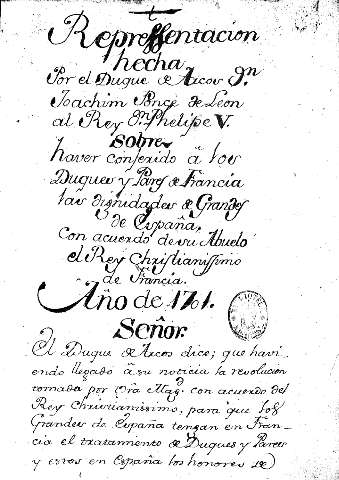 Repressentacion
hecha
Por el Duque de Arcos Dn
Joachim Ponce de Leon
al Rey Dn Phelipe V.
Sobre
haver conferido â los
Duques y Pares de Francia
las dignidades de Grandes
de España,
con acuerdo de su Abuelo
el Rey Christianissimo
de Francia.
Año de 1701.
Señor.
El Duque de Arcos dice, que havi-
endo llegado â su noticia la resolucion
tomada por Vra Magd. con acuerdo del
Rey Christianissimo, para que los
Grandes de España tengan en Fran-
cia el tratamiento de Duques y Pares
y estos en España los honores de